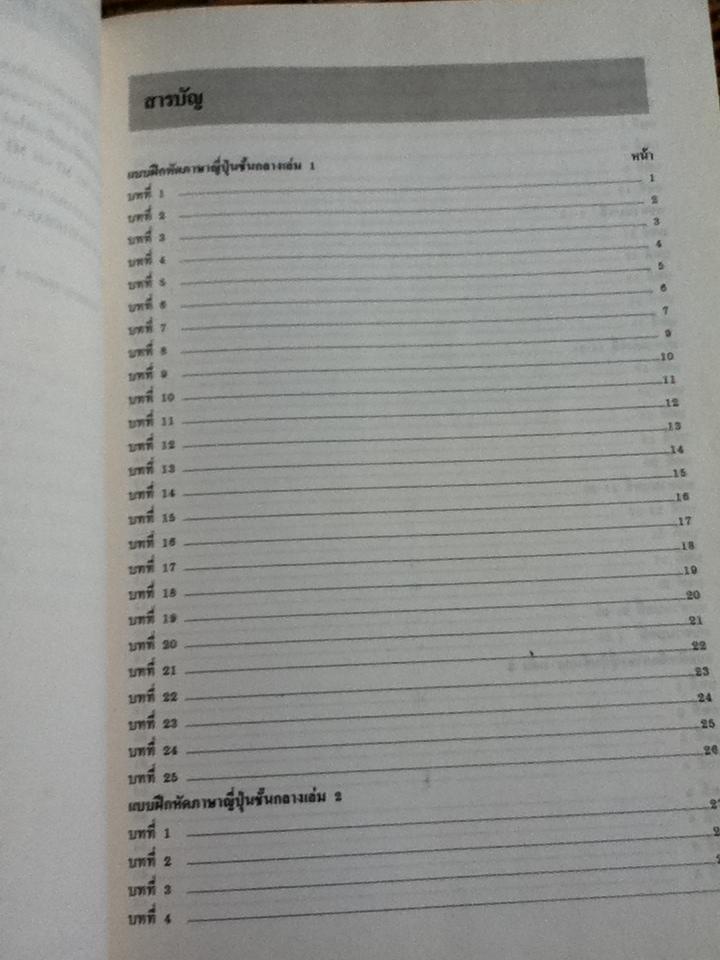 สารบัญ
หน้า
แบบฝึกหัดภาษาญี่ปุ่นชั้นกลางเล่ม 1
บทที่ 1 1
บทที่ 2 2
บทที่ 3 3
บทที่ 4 4
บทที่ 5 5
บทที่ 6 6
บทที่ 7 7
บทที่ 8 9
บทที่ 9 10
บทที่ 10 11
บทที่ 11 12
บทที่ 12 13
บทที่ 13 14
บทที่ 14 15
บทที่ 15 16
บทที่ 16 17
บทที่ 17 18
บทที่ 18 19
บทที่ 19 20
บทที่ 20 21
บทที่ 21 22
บทที่ 22 23
บทที่ 23 24
บทที่ 24 25
บทที่ 25 26
แบบฝึกหัดภาษาญี่ปุ่นชั้นกลางเล่ม 2
บทที่ 1
บทที่ 2
บทที่ 3
บทที่ 4